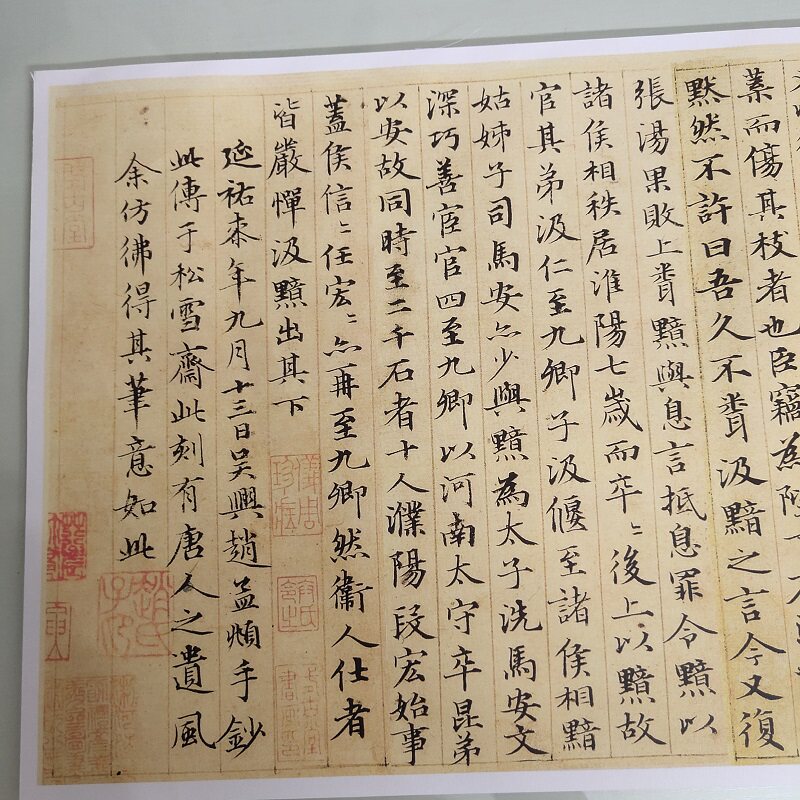 葉而傷其枝者也臣竊為
默然不許曰吾久不聞汲黯之言今又復
張湯果敗上聞黯與息言抵息罪令黯以
諸侯相秩居淮陽七歲而卒〻後上以黯故
官其弟汲仁至九卿子汲偃至諸侯相黯
姑姊子司馬安亦少與黯為太子洗馬安文
深巧善宦官四至九卿以河南太守卒昆弟
以安故同時至二千石者十人濮陽段宏始事
蓋侯信〻任宏〻亦再至九卿然衛人仕者
皆嚴憚汲黯出其下
延祐柒年九月十三日吳興趙孟頫手鈔
此傳于松雪齋此刻有唐人之遺風
余仿彿得其筆意如此
儀周珍藏
趙氏子昂